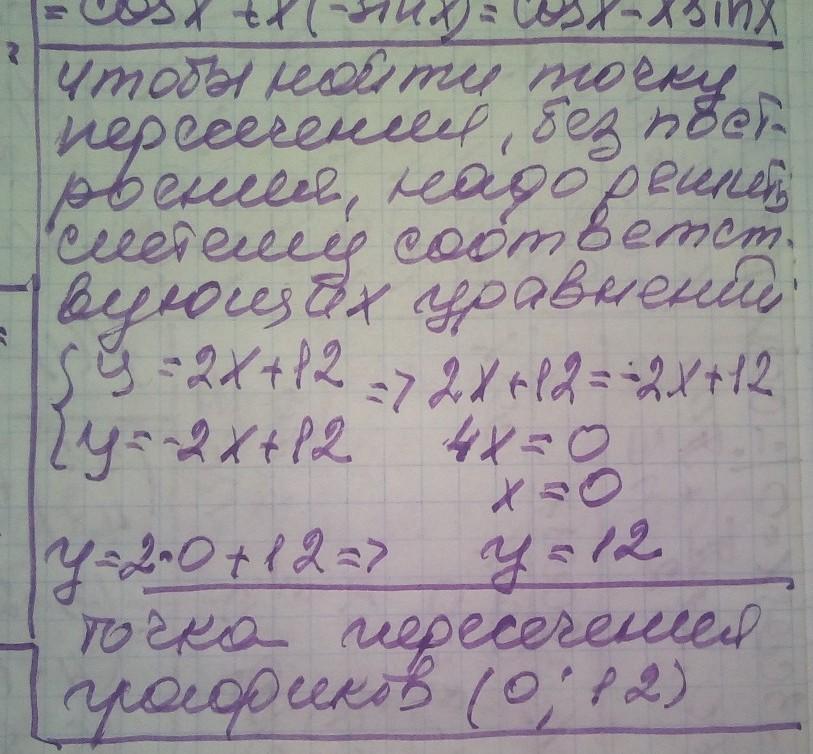 = cosx + x(-sinx) = cosx - x sinx
чтобы найти точку
пересечения, без пост-
роения, надо решить
систему соответст-
вующих уравнений
{ y = 2x+12 => 2x+12 = -2x+12
{ y = -2x+12 4x = 0
x = 0
y = 2·0+12 => y = 12
точка пересечения
графиков (0; 12)